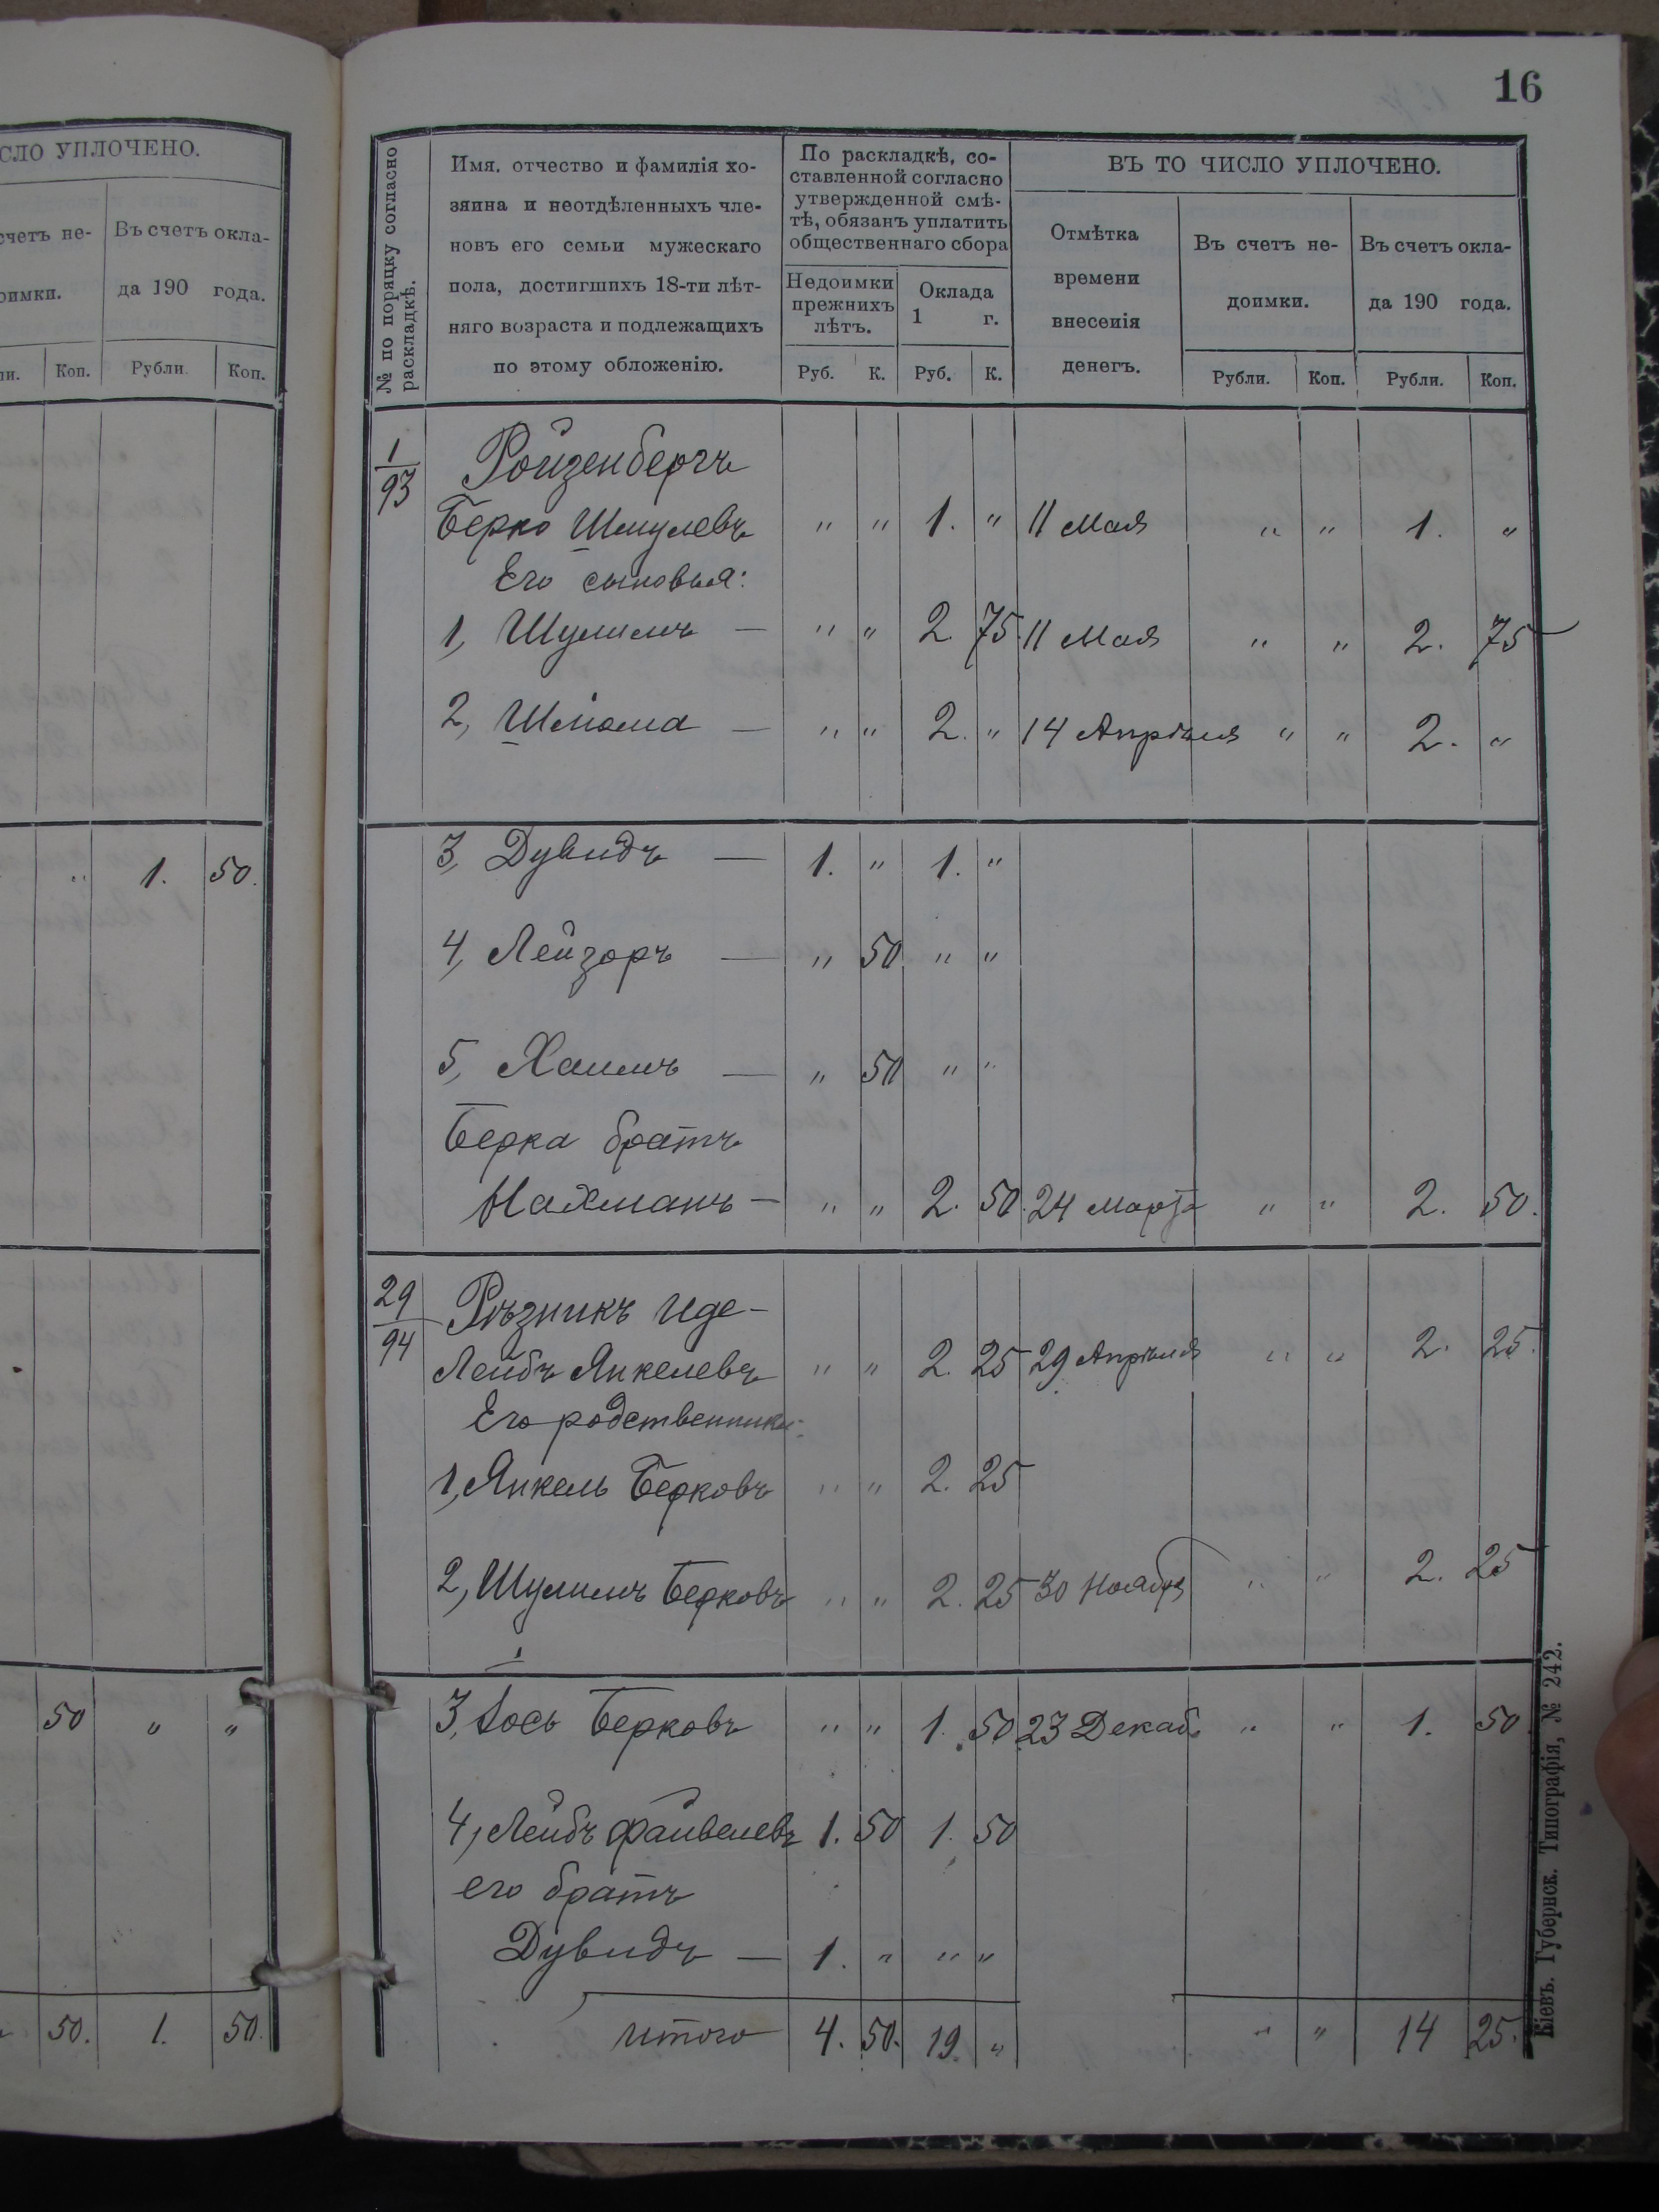 СЛО УПЛОЧЕНО.
счетъ не-
Въ счетъ окла-
оимки.
да 190 года.
ли. Коп. Рубли. Коп.
" 1. 50.
50 " "
50. 1. 50.
16
№ по порядку согласно
раскладкѣ.
Имя, отчество и фамилія хо-
зяина и неотдѣленныхъ чле-
новъ его семьи мужескаго
пола, достигшихъ 18-ти лѣт-
няго возраста и подлежащихъ
по этому обложенію.
По раскладкѣ, со-
ставленной согласно
утвержденной смѣ-
тѣ, обязанъ уплатить
общественнаго сбора
Недоимки
прежнихъ
лѣтъ.
Оклада
1 г.
Руб. К. Руб. К.
ВЪ ТО ЧИСЛО УПЛОЧЕНО.
Отмѣтка
времени
внесенія
денегъ.
Въ счетъ не-
доимки.
Въ счетъ окла-
да 190 года.
Рубли. Коп. Рубли. Коп.
1/93 Ройзенбергъ
Берко Шмулевъ " " 1. " 11 Мая " " 1. "
Его сыновья:
1, Шулимъ — " " 2. 75. 11 Мая " " 2. 75
2, Шлiома — " " 2. " 14 Апрѣля " " 2. "
3, Дувидъ — 1. " 1. "
4, Лейзоръ — " 50 " "
5, Хаимъ — " 50 " "
Берка братъ
Нахманъ — " " 2. 50. 24 Марта " " 2. 50.
29/94 Рѣзникъ Иде-
Лейбъ Янкелевъ " " 2. 25 29 Апрѣля " " 2. 25.
Его родственники:
1, Янкель Берковъ " " 2. 25
2, Шулимъ Берковъ " " 2. 25 30 Ноября " " 2. 25
3, Іось Берковъ " " 1. 50 23 Декаб. " " 1. 50.
4, Лейбъ Файвелевъ 1. 50 1. 50
его братъ
Дувидъ — 1. " " "
Итого 4. 50. 19. " " " 14 25.
Кіевъ. Губернск. Типографія, № 242.